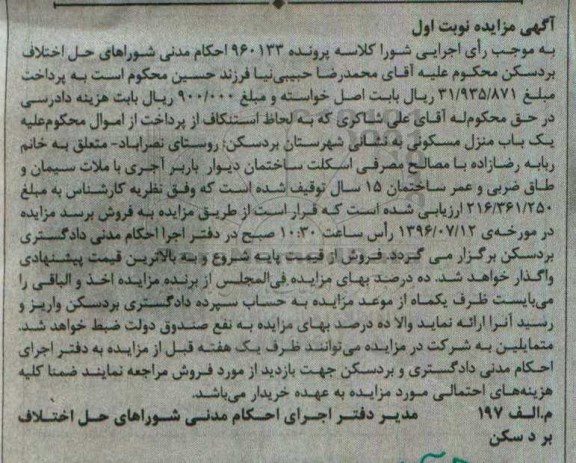 آگهی مزایده نوبت اول
به موجب رأی اجرایی شورا کلاسه پرونده ۹۶۰۱۳۳ احکام مدنی شوراهای حل اختلاف
بردسکن محکوم علیه آقای محمدرضا حبیبی‌نیا فرزند حسین محکوم است به پرداخت
مبلغ ۳۱/۹۳۵/۸۷۱ ریال بابت اصل خواسته و مبلغ ۹۰۰/۰۰۰ ریال بابت هزینه دادرسی
در حق محکوم‌له آقای علی شاکری که به لحاظ استنکاف از پرداخت از اموال محکوم‌علیه
یک باب منزل مسکونی به نشانی شهرستان بردسکن: روستای نصراباد- متعلق به خانم
ربابه رضازاده با مصالح مصرفی اسکلت ساختمان دیوار باربر آجری با ملات سیمان و
طاق ضربی و عمر ساختمان ۱۵ سال توقیف شده است که وفق نظریه کارشناس به مبلغ
۲۱۶/۳۶۱/۲۵۰ ارزیابی شده است که قرار است از طریق مزایده به فروش برسد مزایده
در مورخه‌ی ۱۳۹۶/۰۷/۱۲ رأس ساعت ۱۰:۳۰ صبح در دفتر اجرا احکام مدنی دادگستری
بردسکن برگزار می گردد. فروش از قیمت پایه شروع و به بالاترین قیمت پیشنهادی
واگذار خواهد شد. ده درصد بهای مزایده فی‌المجلس از برنده مزایده اخذ و الباقی را
می‌بایست ظرف یکماه از موعد مزایده به حساب سپرده دادگستری بردسکن واریز و
رسید آنرا ارائه نماید والا ده درصد بهای مزایده به نفع صندوق دولت ضبط خواهد شد.
متمایلین به شرکت در مزایده می‌توانند ظرف یک هفته قبل از مزایده به دفتر اجرای
احکام مدنی دادگستری و بردسکن جهت بازدید از مورد فروش مراجعه نمایند ضمنا کلیه
هزینه‌های احتمالی مورد مزایده به عهده خریدار می‌باشد.
م.الف ۱۹۷ مدیر دفتر اجرای احکام مدنی شوراهای حل اختلاف
بردسکن